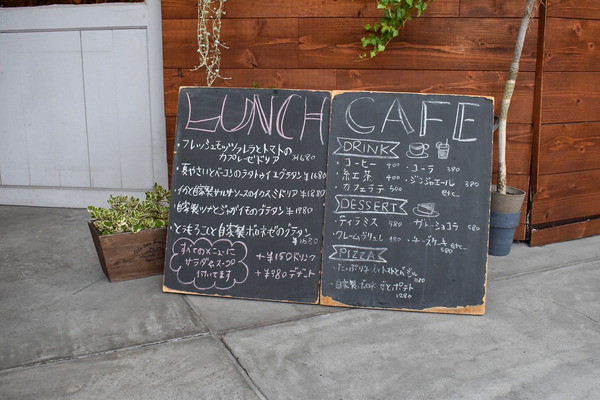 LUNCH
・フレッシュモッツァレラとトマトの
カプレーゼドリア ¥1680
・夏やさいとベーコンのラタトゥイユグラタン ¥1680
・イカと自家製サルサソースのイカスミドリア ¥1880
・自家製ツナとじゃがいものグラタン ¥1780
・とうもろこと自家製ボロネーゼのグラタン
¥1680
すべてのメニューに
サラダ&スープ
付いてます
+¥150ドリンク
+¥380デザート
CAFE
DRINK
・コーヒー 400
・コーラ 380
・紅茶 400
・ジンジャエール 380
・カフェラテ 500
etc.
DESSERT
・ティラミス 480
・ガトーショコラ 580
・クレームブリュレ 480
・チーズケーキ etc
PIZZA
1180
・自家製
1280